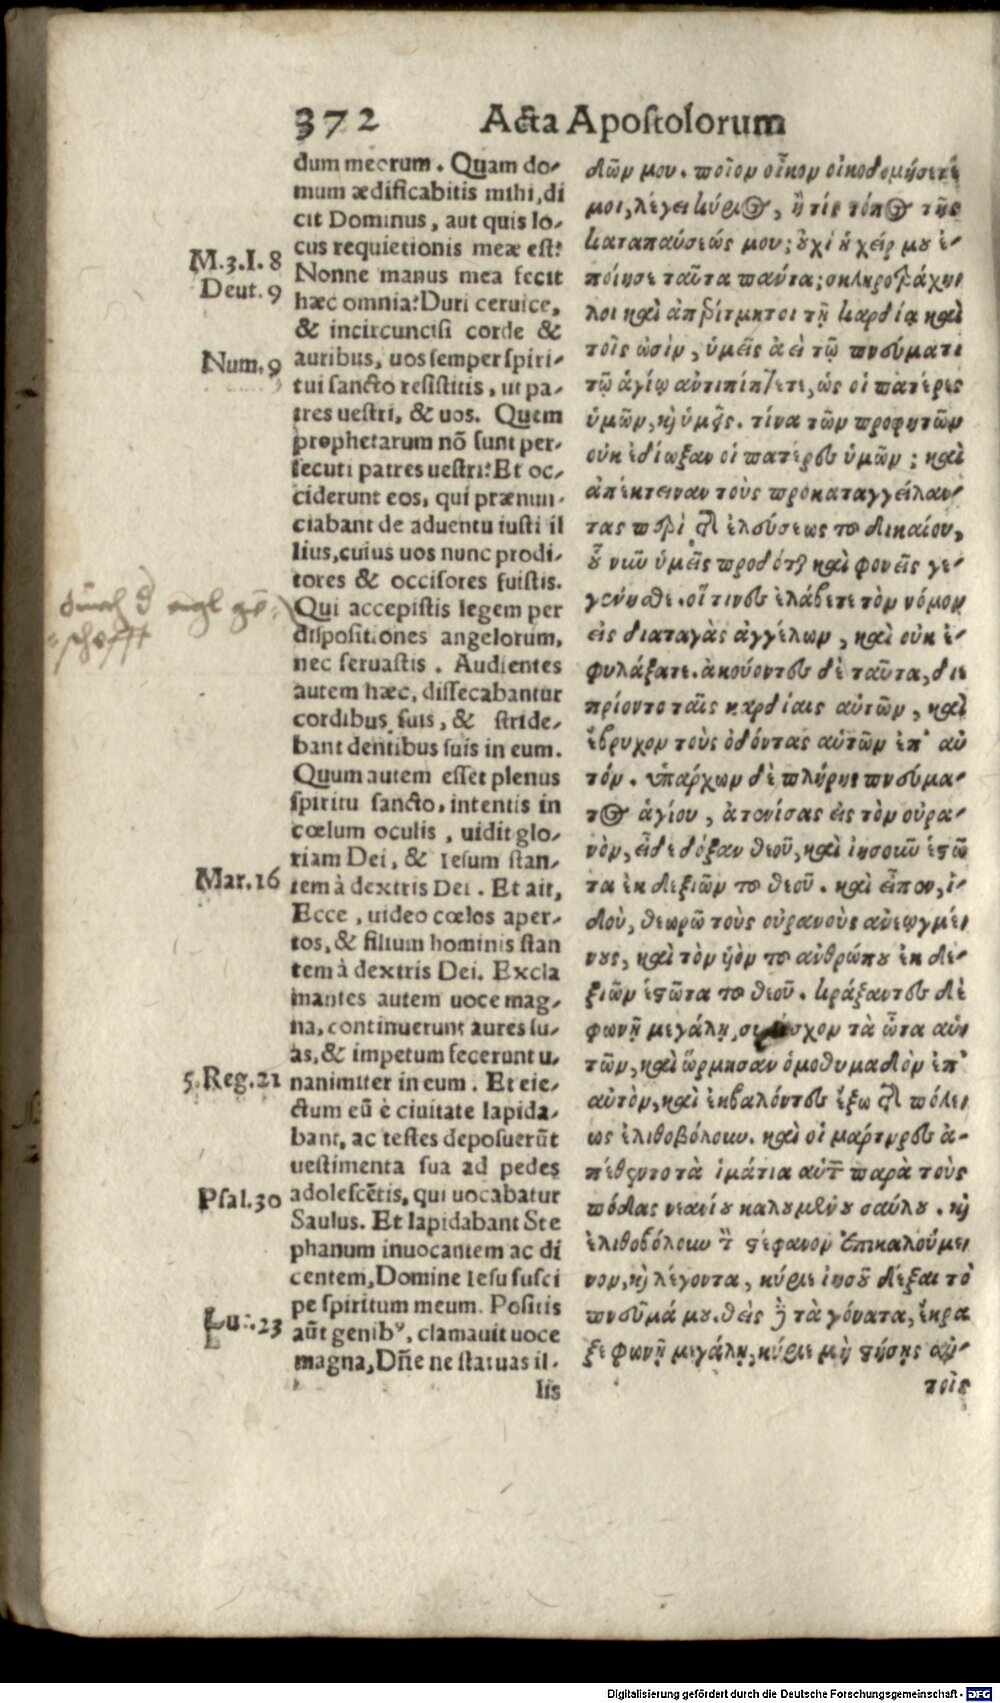 372
Acta Apostolorum
M.3.I.8
Deut.9
Num.9
Mar.16
5.Reg.21
Psal.30
Luc.23
dum meorum. Quam do-
mum ædificabitis mihi, di
cit Dominus, aut quis lo-
cus requietionis meæ est?
Nonne manus mea fecit
hæc omnia? Duri ceruice,
& incircuncisi corde &
auribus, uos semper spiri-
tui sancto resistitis, ut pa-
tres uestri, & uos. Quem
prophetarum nõ sunt per-
secuti patres uestri? Et oc-
ciderunt eos, qui prænun-
ciabant de aduentu iusti il
lius, cuius uos nunc prodi-
tores & occisores fuistis.
Qui accepistis legem per
dispositiones angelorum,
nec seruastis. Audientes
autem hæc, dissecabantur
cordibus suis, & stride-
bant dentibus suis in eum.
Quum autem esset plenus
spiritu sancto, intentis in
cœlum oculis, uidit glo-
riam Dei, & Iesum stan-
tem à dextris Dei. Et ait,
Ecce, uideo cœlos aper-
tos, & filium hominis stan
tem à dextris Dei. Excla
mantes autem uoce mag-
na, continuerunt aures su-
as, & impetum fecerunt u-
nanimiter in eum. Et eie-
ctum eũ è ciuitate lapida-
bant, ac testes deposuerũt
uestimenta sua ad pedes
adolescẽtis, qui uocabatur
Saulus. Et lapidabant Ste
phanum inuocantem ac di
centem, Domine Iesu susci
pe spiritum meum. Positis
aũt genibꝰ, clamauit uoce
magna, Dñe ne statuas il-
lis
δῶν μου. ποῖον οἶκον οἰκοδομήσετέ
μοι, λέγει κύριος, ἢ τίς τόπος τῆς
καταπαύσεώς μου; οὐχὶ ἡ χείρ μου ἐ-
ποίησε ταῦτα πάντα; σκληροτράχη
λοι καὶ ἀπερίτμητοι τῇ καρδίᾳ καὶ
τοῖς ὠσὶν, ὑμεῖς ἀεὶ τῷ πνεύματι
τῷ ἁγίῳ ἀντιπίπτετε, ὡς οἱ πατέρες
ὑμῶν, καὶ ὑμεῖς. τίνα τῶν προφητῶν
οὐκ ἐδίωξαν οἱ πατέρες ὑμῶν; καὶ
ἀπέκτειναν τοὺς προκαταγγείλαν-
τας περὶ τῆς ἐλεύσεως τοῦ δικαίου,
οὗ νῦν ὑμεῖς προδόται καὶ φονεῖς γε-
γένησθε. οἵτινες ἐλάβετε τὸν νόμον
εἰς διαταγὰς ἀγγέλων, καὶ οὐκ ἐ-
φυλάξατε. ἀκούοντες δὲ ταῦτα, διε
πρίοντο ταῖς καρδίαις αὐτῶν, καὶ
ἔβρυχον τοὺς ὀδόντας αὐτῶν ἐπ' αὐ
τόν. ὑπάρχων δὲ πλήρης πνεύμα-
τος ἁγίου, ἀτενίσας εἰς τὸν οὐρα-
νὸν, εἶδε δόξαν θεοῦ, καὶ ἰησοῦν ἑστῶ
τα ἐκ δεξιῶν τοῦ θεοῦ. καὶ εἶπον, ἰ-
δοὺ, θεωρῶ τοὺς οὐρανοὺς ἀνεῳγμέ
νους, καὶ τὸν υἱὸν τοῦ ἀνθρώπου ἐκ δε-
ξιῶν ἑστῶτα τοῦ θεοῦ. κράξαντες δὲ
φωνῇ μεγάλῃ, συνέσχον τὰ ὦτα αὐ
τῶν, καὶ ὥρμησαν ὁμοθυμαδὸν ἐπ'
αὐτὸν, καὶ ἐκβαλόντες ἔξω τῆς πόλε
ως ἐλιθοβόλουν. καὶ οἱ μάρτυρες ἀ-
πέθεντο τὰ ἱμάτια αὐτῶν παρὰ τοὺς
πόδας νεανίου καλουμένου σαύλου. καὶ
ἐλιθοβόλουν τὸν στέφανον ἐπικαλούμε
νον, καὶ λέγοντα, κύριε ἰησοῦ δέξαι τὸ
πνεῦμά μου. θεὶς δὲ τὰ γόνατα, ἔκρα
ξε φωνῇ μεγάλῃ, κύριε μὴ στήσῃς αὐ-
τοῖς
Digitalisierung gefördert durch die Deutsche Forschungsgemeinschaft - DFG